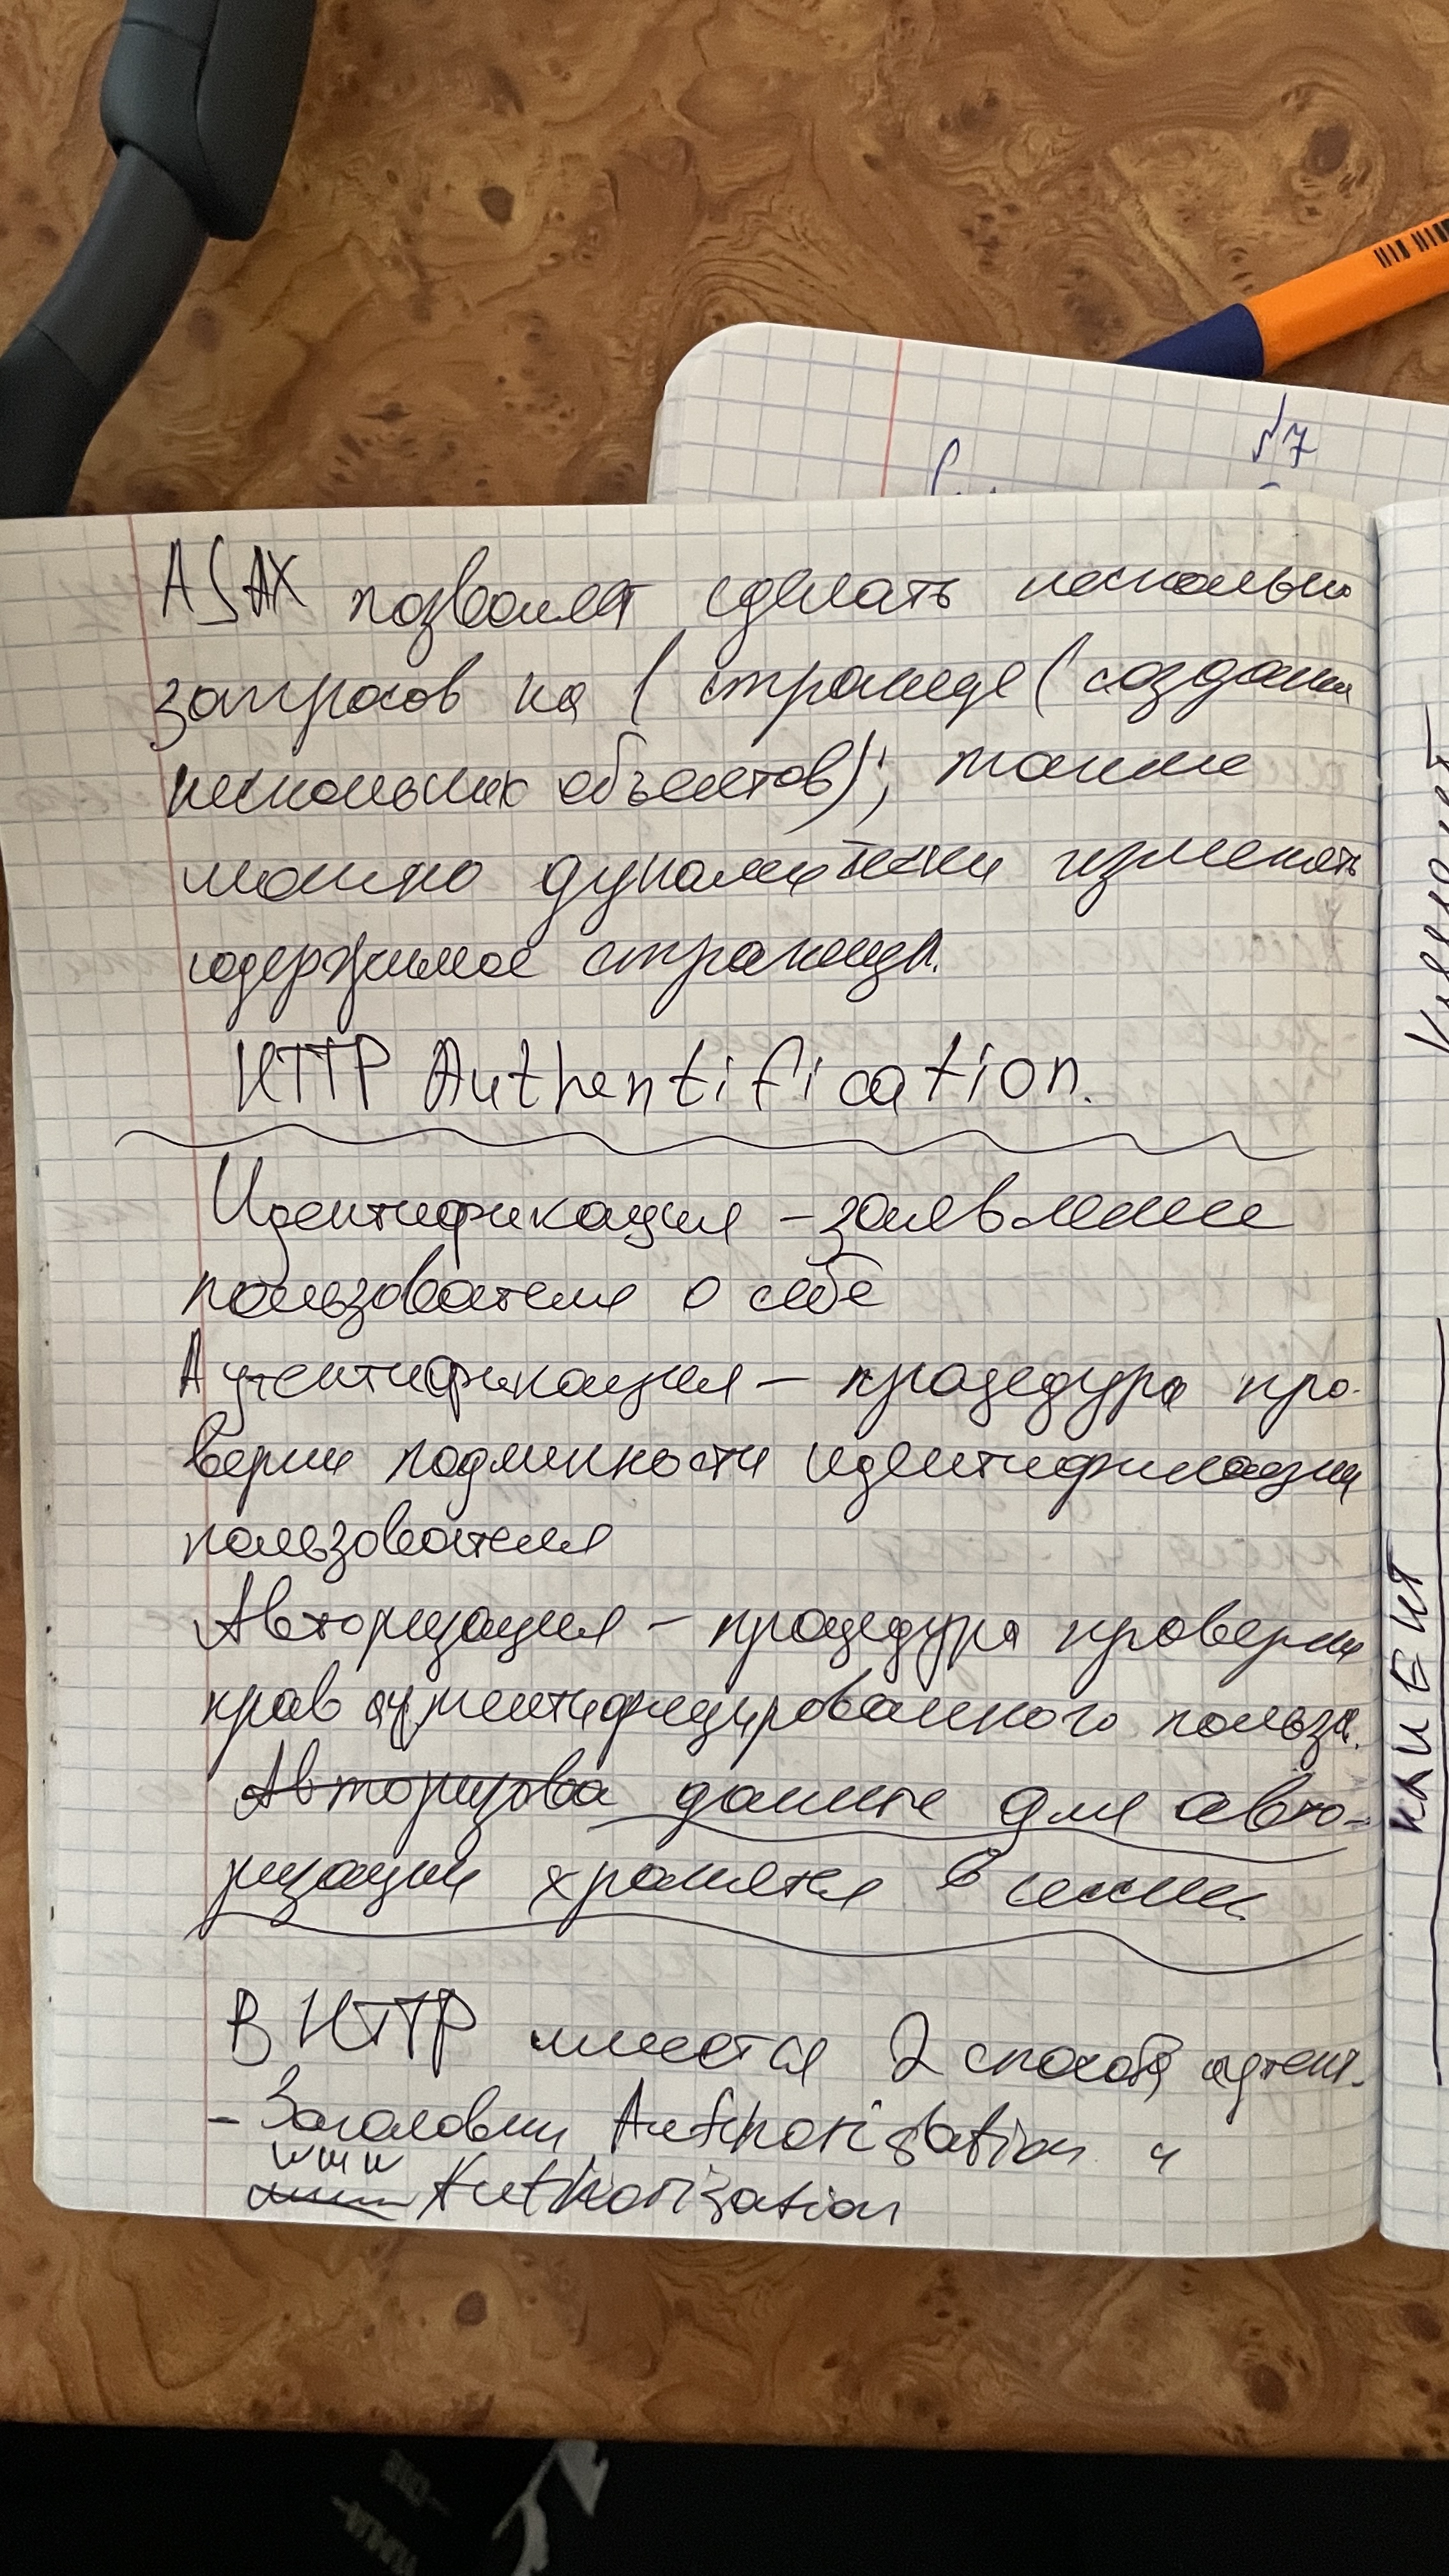 №7
AJAX позволяет сделать несколько
запросов на 1 странице (создание
нескольких объектов); также
можно динамически изменять
содержимое страницы.
HTTP Authentification.
Идентификация – заявление
пользователя о себе
Аутентификация – процедура про-
верки подлинности идентификации
пользователя
Авторизация – процедура проверки
прав аутентифицированного пользов.
Авторизова данные для авто-
ризации хранятся в сессии.
В HTTP имеется 2 способа аутент.
- Заголовки Authorization и
www Authorization
клиент